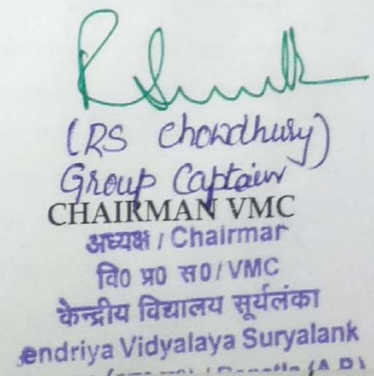 (RS Chowdhury)
Group Captain
CHAIRMAN VMC
अध्यक्ष / Chairmar
वि0 प्र0 स0/VMC
केन्द्रीय विद्यालय सूर्यलंका
endriya Vidyalaya Suryalank
(A.P)